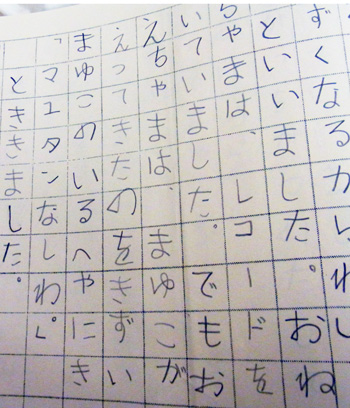 ずくなるか
といいました。おね
ちやまは、レコードを
いていました。でもお
えちやまは、まゆこが
えってきたのをきずい
まゆこのいるへやにき
「マユタンなしわ
とききました。